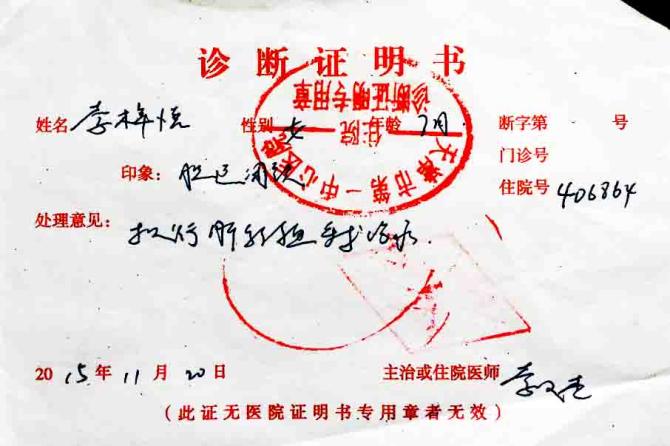 诊断证明书
姓名 李梓悦 性别 女 年龄 7月 断字第 号
门诊号
印象： 胆道闭锁
住院号 406864
处理意见：
拟行肝移植手术治疗.
天津市第一中心医院
住院
诊断证明专用章
2015年11月20日 主治或住院医师
(此证无医院证明书专用章者无效)